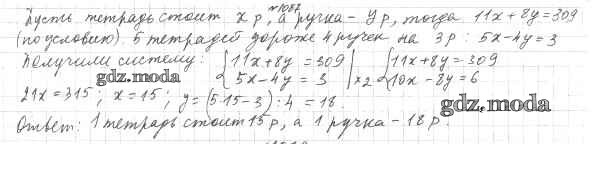 №1087
Пусть тетрадь стоит x р, а ручка - y р, тогда 11x + 8y = 309
(по условию). 5 тетрадей дороже 4 ручек на 3 р : 5x - 4y = 3
Получили систему: { 11x + 8y = 309 | { 11x + 8y = 309
5x - 4y = 3 | ×2 10x - 8y = 6
gdz.moda
21x = 315; x = 15; y = (5·15 - 3) : 4 = 18.
gdz.moda
Ответ: 1 тетрадь стоит 15 р, а 1 ручка - 18 р.